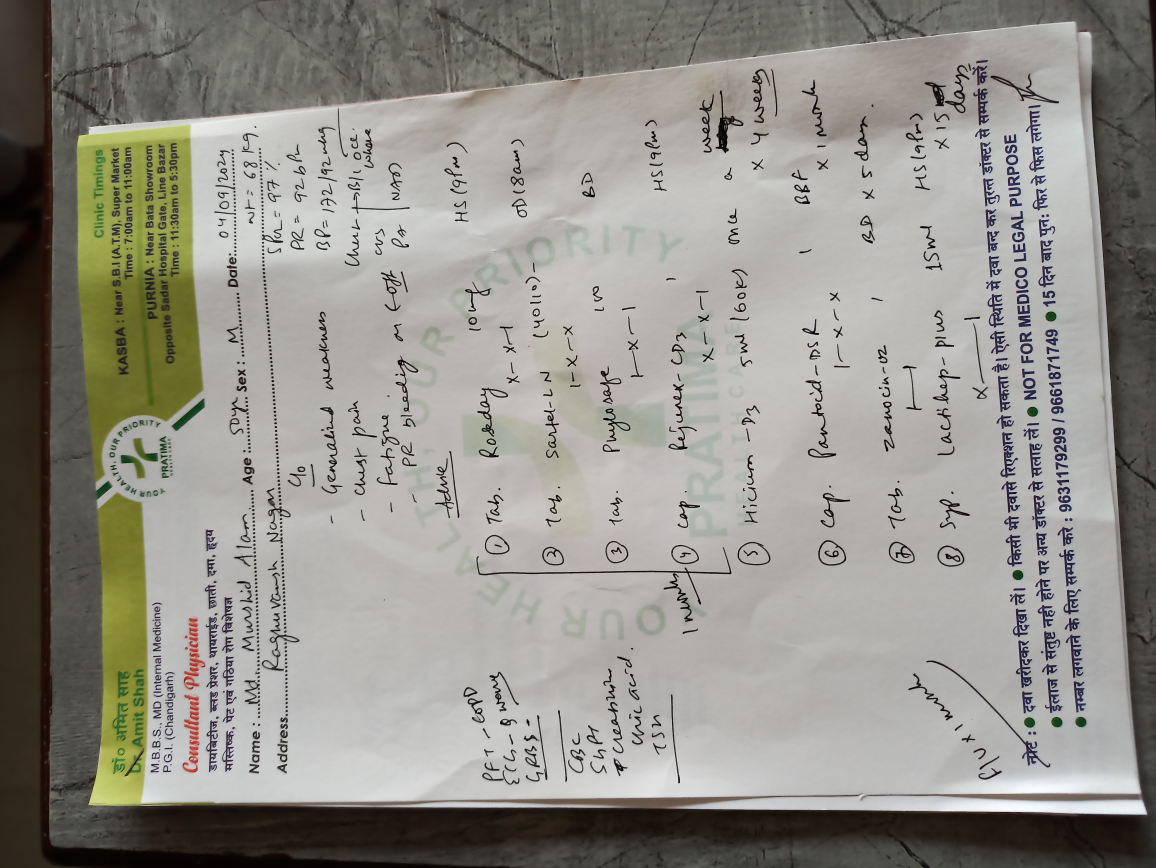 डॉ० अमित साह
Dr. Amit Shah
M.B.B.S., MD (Internal Medicine)
P.G.I. (Chandigarh)
Consultant Physician
डायबिटीज, ब्लड प्रेशर, थायराईड, छाती, दमा, हृदय
मस्तिष्क, पेट एवं गठिया रोग विशेषज्ञ
YOUR HEALTH, OUR PRIORITY
PRATIMA
HEALTHCARE
Clinic Timings
KASBA : Near S.B.I (A.T.M), Super Market
Time : 7:00am to 11:00am
PURNIA : Near Bata Showroom
Opposite Sadar Hospital Gate, Line Bazar
Time : 11:30am to 5:30pm
Name : Md. Murshid Alam Age : 50yr Sex : M Date: 04/09/2024
Address Raghuvansh Nagar WT = 68 kg.
C/o
- Generalised weakness
- Chest pain
- Fatigue.
- PR bleeding on & off
SPO2 = 97 %
PR = 92 bpm
BP = 172/92 mmHg
Chest → B/L occ. wheeze
CVS
PA NAD
Advise
① Tab. Roseday 10mg HS (9pm)
x-x-1
② Tab. Sartel-LN (40/10) - OD (8am)
1-x-x
③ Tab. BD
1-x-1
④ Cap. Rejunex-CD3 1 HS (9pm)
x-x-1
1 month
⑤ 5ml (60K) once a week
x 4 weeks
⑥ Cap. Pantocid-DSR 1 BBF
1-x-x x 1 month
⑦ Tab. Zanocin-OZ 1 BD x 5 days.
1-1
⑧ Syp. Lactihep-plus 15ml HS (9pm)
x-1 x 15 days
PFT - COPD
ECG - q wave
GRBS -
CBC
SGPT
Creatinine
Uric acid.
TSH
F/U x 1 month
YOUR HEALTH, OUR PRIORITY
PRATIMA
HEALTHCARE
नोट : ● दवा खरीदकर दिखा लें। ● किसी भी दवासे रिएक्शन हो सकता है। ऐसी स्थिति में दवा बन्द कर तुरन्त डॉक्टर से सम्पर्क करें।
● ईलाज से संतुष्ट नही होने पर अन्य डॉक्टर से सलाह लें। ● NOT FOR MEDICO LEGAL PURPOSE
● नम्बर लगवाने के लिए सम्पर्क करे : 9631179299 / 9661871749 ● 15 दिन बाद पुनः फिर से फिस लगेगा।